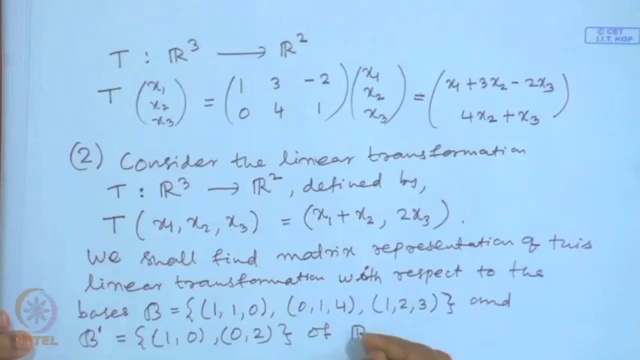 © CET
I.I.T. KGP
T : ℝ³ ⟶ ℝ²
T (x₁ x₂ x₃) = (1 3 -2 0 4 1) (x₁ x₂ x₃) = (x₁ + 3x₂ - 2x₃ 4x₂ + x₃)
(2) Consider the linear transformation
T : ℝ³ ⟶ ℝ², defined by,
T (x₁, x₂, x₃) = (x₁ + x₂, 2x₃).
We shall find matrix representation of this
linear transformation with respect to the
bases B = {(1, 1, 0), (0, 1, 4), (1, 2, 3)} and
B' = {(1, 0), (0, 2)} of ℝ